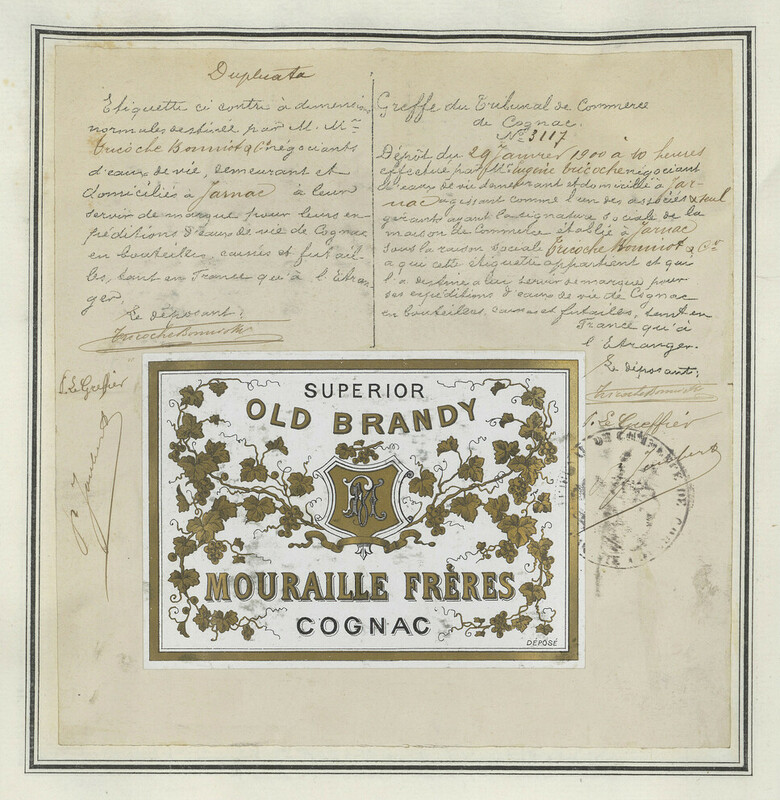 Duplicata
Etiquette ci contre à dimensions
normales destinée par M. M.rs
Tricoche Bonniot & Cie négociants
d'eaux de vie, demeurant et
domiciliés à Jarnac à leur
servir de marque pour leurs ex-
péditions d'eaux de vie de Cognac
en bouteilles, caisses et futail-
les, tant en France qu'à l'Etran-
ger.
Le déposant:
Tricoche Bonniot & Cie
P. Le Greffier
Greffe du Tribunal de Commerce
de Cognac.
No 3117
Dépôt du 29 Janvier 1900 à 10 heures
effectué par Mr Eugène Tricoche négociant
d'eaux de vie demeurant et domicilié à Jar-
nac agissant comme l'un des associés & seul
gérant ayant la signature sociale de la
maison de Commerce établie à Jarnac
sous la raison sociale Tricoche Bonniot & Cie
à qui cette étiquette appartient et qui
l'a destinée à leur servir de marque pour
ses expéditions d'eaux de vie de Cognac
en bouteilles, caisses et futailles, tant en
France qu'à
l'Etranger.
Le déposant:
Tricoche Bonniot & Cie
P. Le Greffier
SUPERIOR
OLD BRANDY
MOURAILLE FRÈRES
COGNAC
DÉPOSÉ